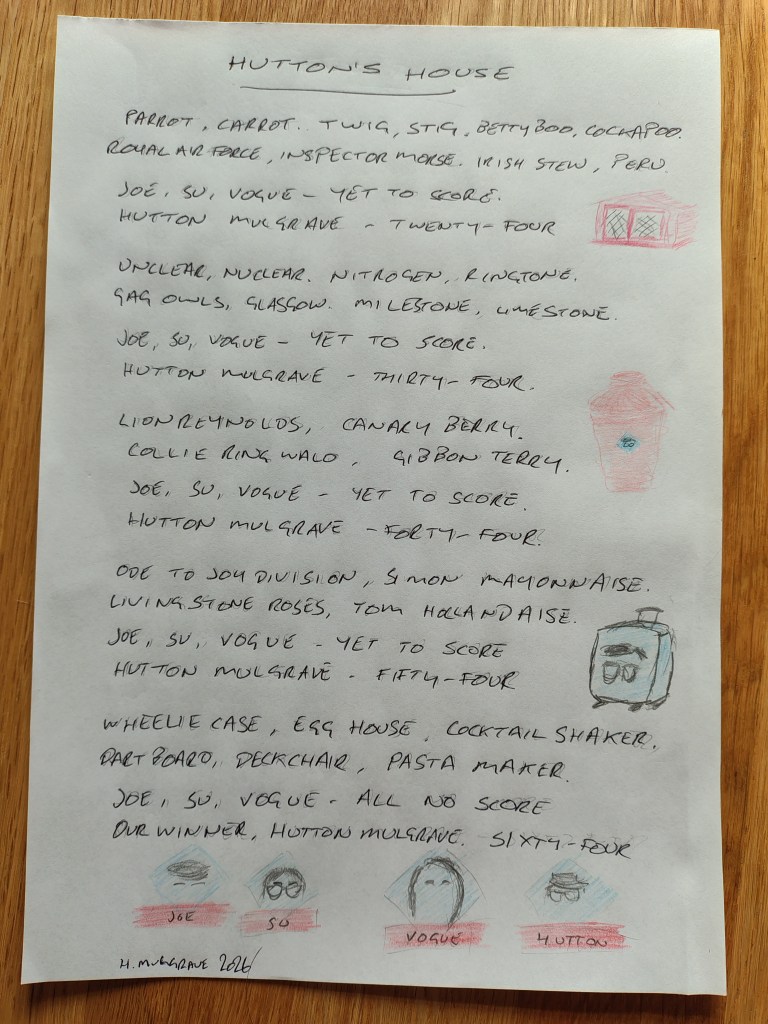 HUTTON'S HOUSE
PARROT, CARROT. TWIG, STIG, BETTY BOO, COCKAPOO.
ROYAL AIR FORCE, INSPECTOR MORSE. IRISH STEW, PERU.
JOE, SU, VOGUE - YET TO SCORE.
HUTTON MULGRAVE - TWENTY-FOUR
UNCLEAR, NUCLEAR. NITROGEN, RINGTONE.
GAG OWLS, GLASGOW. MILESTONE, LIMESTONE.
JOE, SU, VOGUE - YET TO SCORE.
HUTTON MULGRAVE - THIRTY-FOUR.
LION REYNOLDS, CANARY BERRY.
COLLIE RINGWALD, GIBBON TERRY.
JOE, SU, VOGUE - YET TO SCORE.
HUTTON MULGRAVE - FORTY-FOUR.
ODE TO JOY DIVISION, SIMON MAYONNAISE.
LIVINGSTONE ROSES, TOM HOLLANDAISE.
JOE, SU, VOGUE - YET TO SCORE
HUTTON MULGRAVE - FIFTY-FOUR
WHEELIE CASE, EGG HOUSE, COCKTAIL SHAKER.
DARTBOARD, DECKCHAIR, PASTA MAKER.
JOE, SU, VOGUE - ALL NO SCORE
OUR WINNER, HUTTON MULGRAVE. SIXTY-FOUR
JOE SU VOGUE HUTTON
H. MULGRAVE 2026